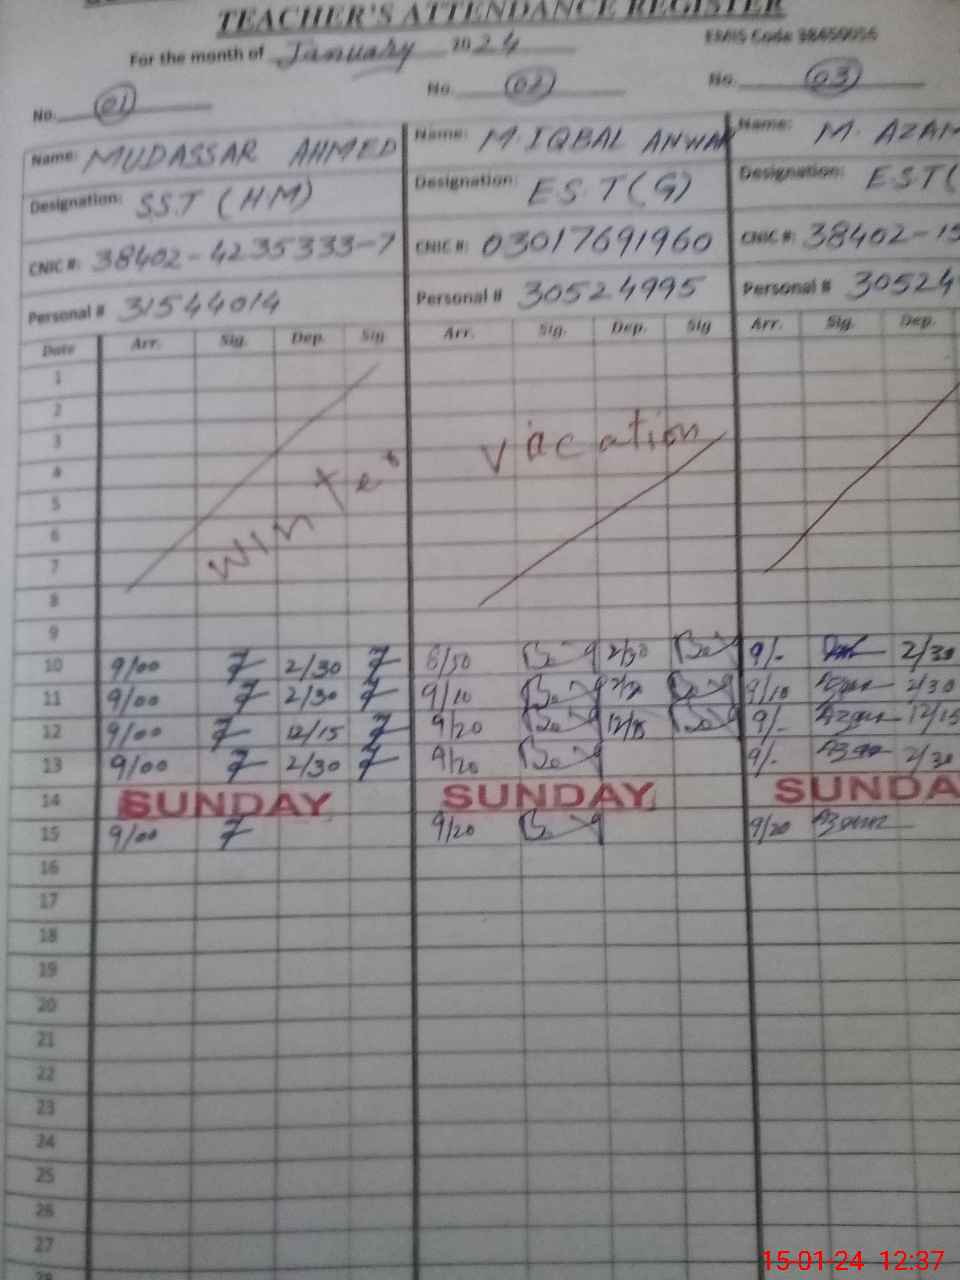 TEACHER'S ATTENDANCE REGISTER
For the month of January 2024 EMIS Code
No. 01 No. 02 No. 03
Name: MUDASSAR AHMED Name: M. IQBAL ANWAR Name: M. AZAM
Designation: S.S.T (H.M) Designation: E.S.T (G) Designation: E.S.T (
CNIC #: 38402-4235333-7 CNIC #: 03017691960 CNIC #: 38402-15
Personal # 31544014 Personal # 30524995 Personal # 30524
Date Arr. Sig. Dep. Sig Arr. Sig. Dep. Sig Arr. Sig. Dep.
1
2
3
4
5
6
7
8
winter vacation
9
10 9/00 2/30 8/50 2/30 9/- 2/30
11 9/00 2/30 9/10 2/30 9/10 2/30
12 9/00 12/15 9/20 12/15 9/- 12/15
13 9/00 2/30 9/20 9/- 2/30
14 SUNDAY SUNDAY SUNDA
15 9/00 9/20 9/20
16
17
18
19
20
21
22
23
24
25
26
27
28
15-01-24 12:37